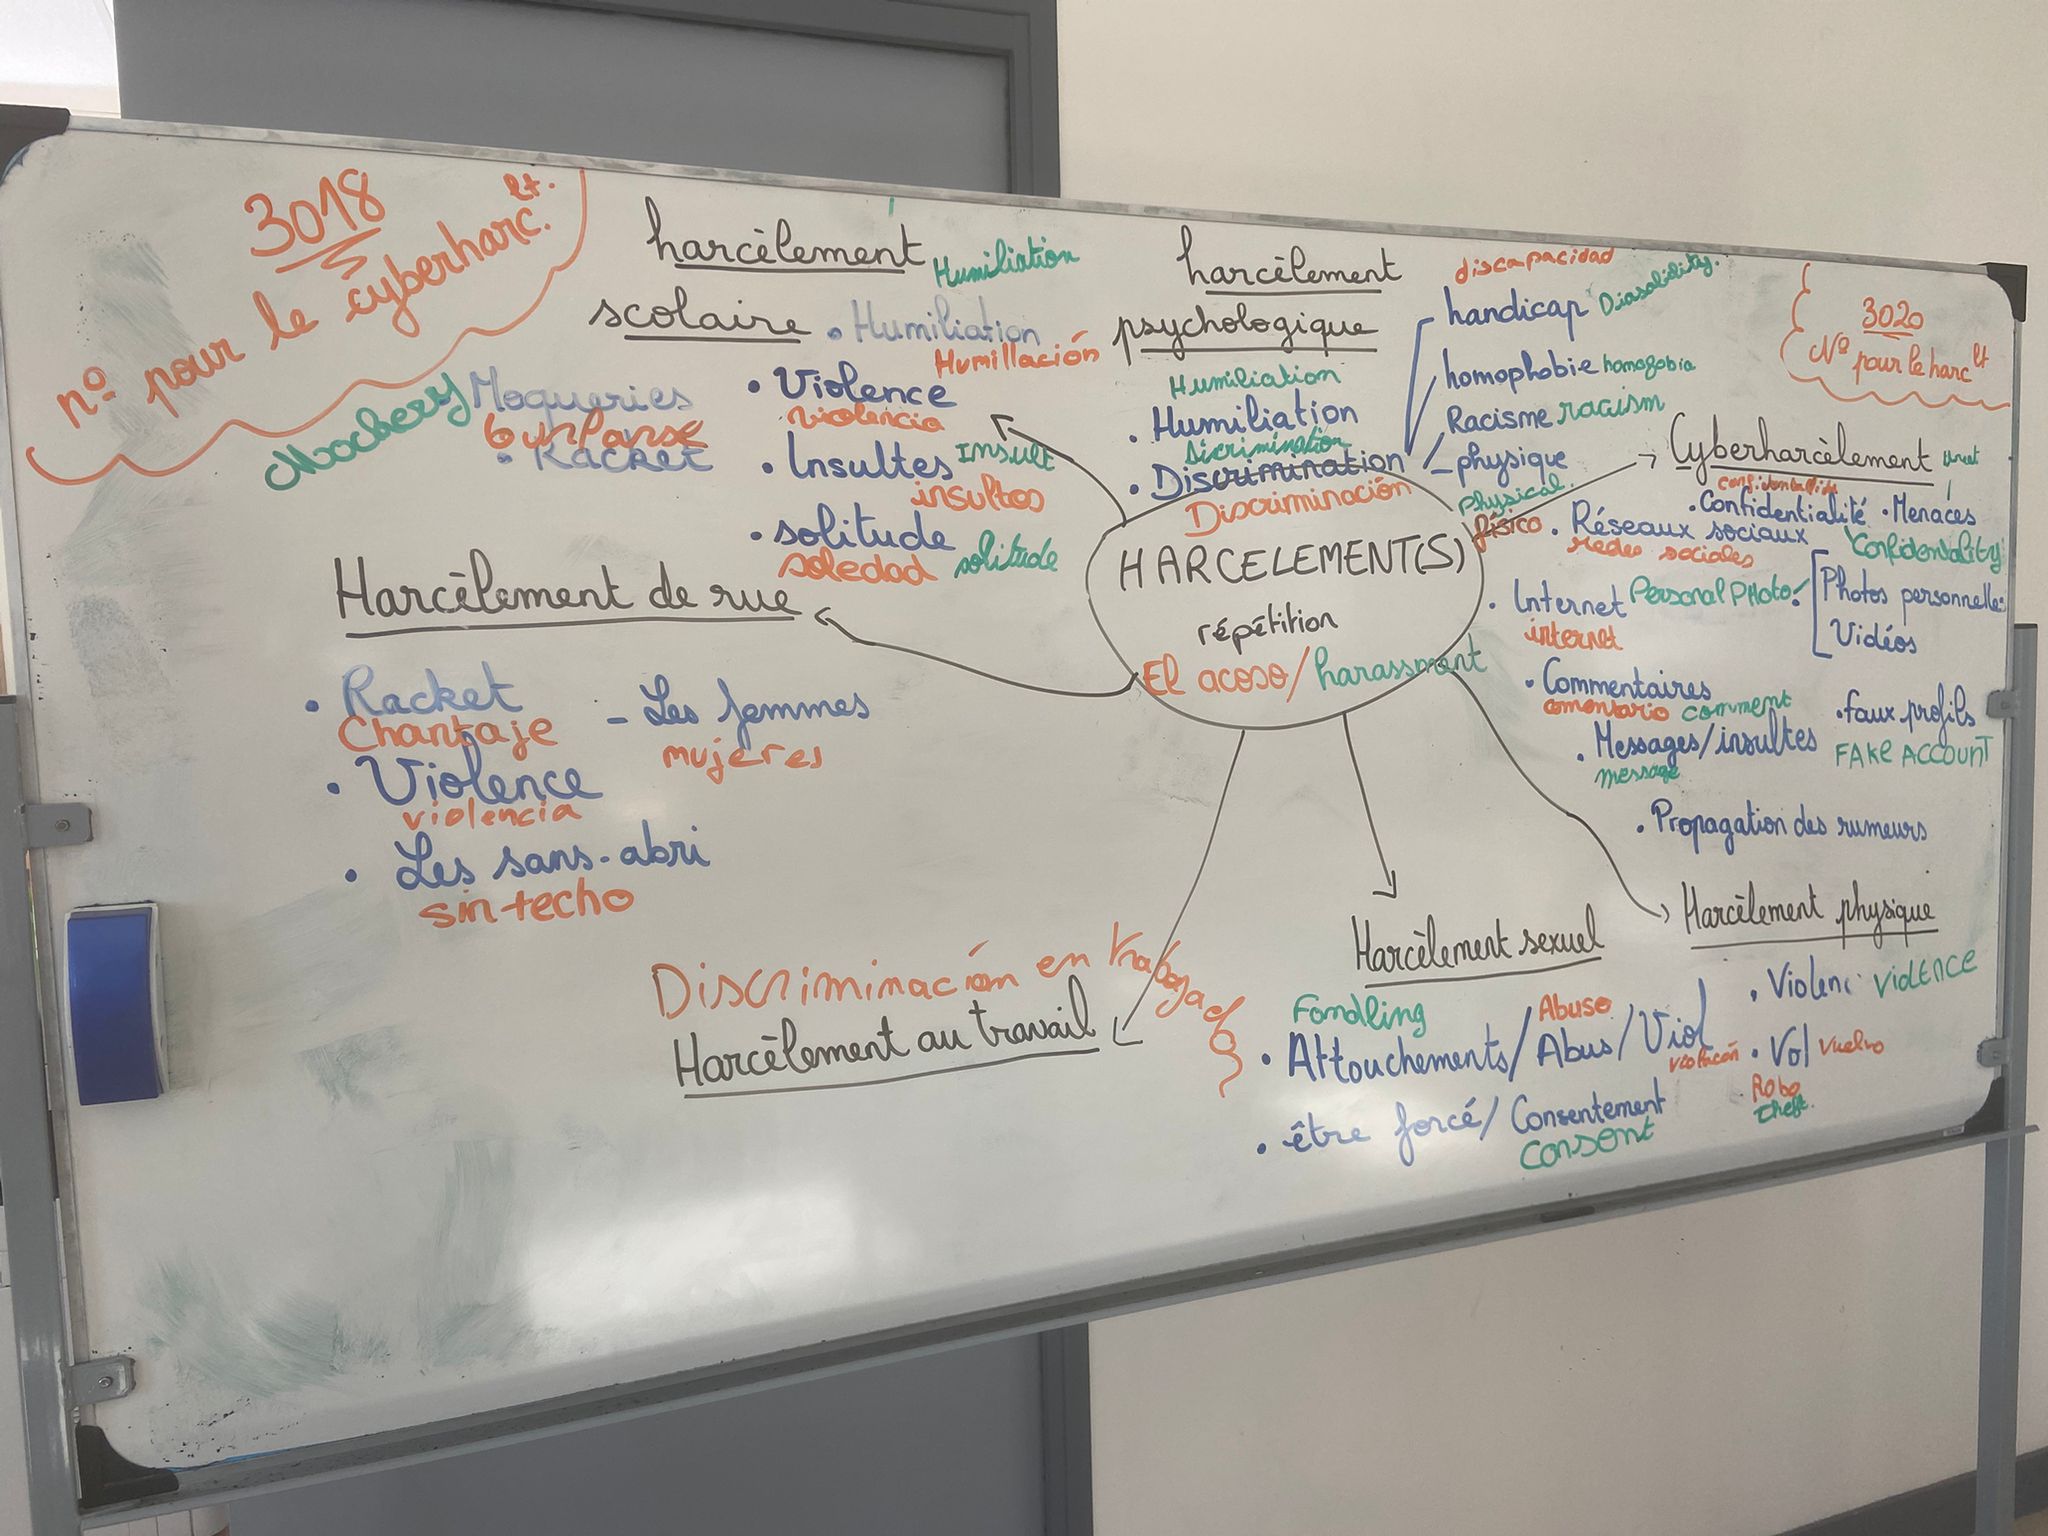 3018
n° pour le cyberharc.lt.
harcèlement
scolaire
Humiliation
• Humiliation
Humillación
Mockery
Moqueries
burlarse
• Racket
• Violence
violencia
• Insultes
Insult
insultos
• solitude
soledad
solitude
harcèlement
psychologique
Humiliation
• Humiliation
Discrimination
Discriminación
discapacidad
handicap
Diasability.
homophobie homofobia
Racisme racism
– physique
physical.
físico
3020
N° pour le harc lt
Cyberharcèlement
• Confidentialité
• Menaces
Confidentality
• Réseaux sociaux
redes sociales
• Internet
internet
Personal PHoto!
Photos personnelles
Vidéos
• Commentaires
comentario comment
• Messages/insultes
message
• faux profils
FAKE ACCOUNT
• Propagation des rumeurs
HARCELEMENT(S)
répétition
El acoso/harassment
Harcèlement de rue
• Racket
Chantaje
– Les femmes
mujeres
• Violence
violencia
• Les sans-abri
sin techo
Discriminación en trabajado
Harcèlement au travail
Harcèlement sexuel
Fondling
Abuso
• Attouchements/Abus/Viol
violación
• être forcé/Consentement
consent
Harcèlement physique
• Violenc
violence
• Vol vuelvo
Robo
theft.